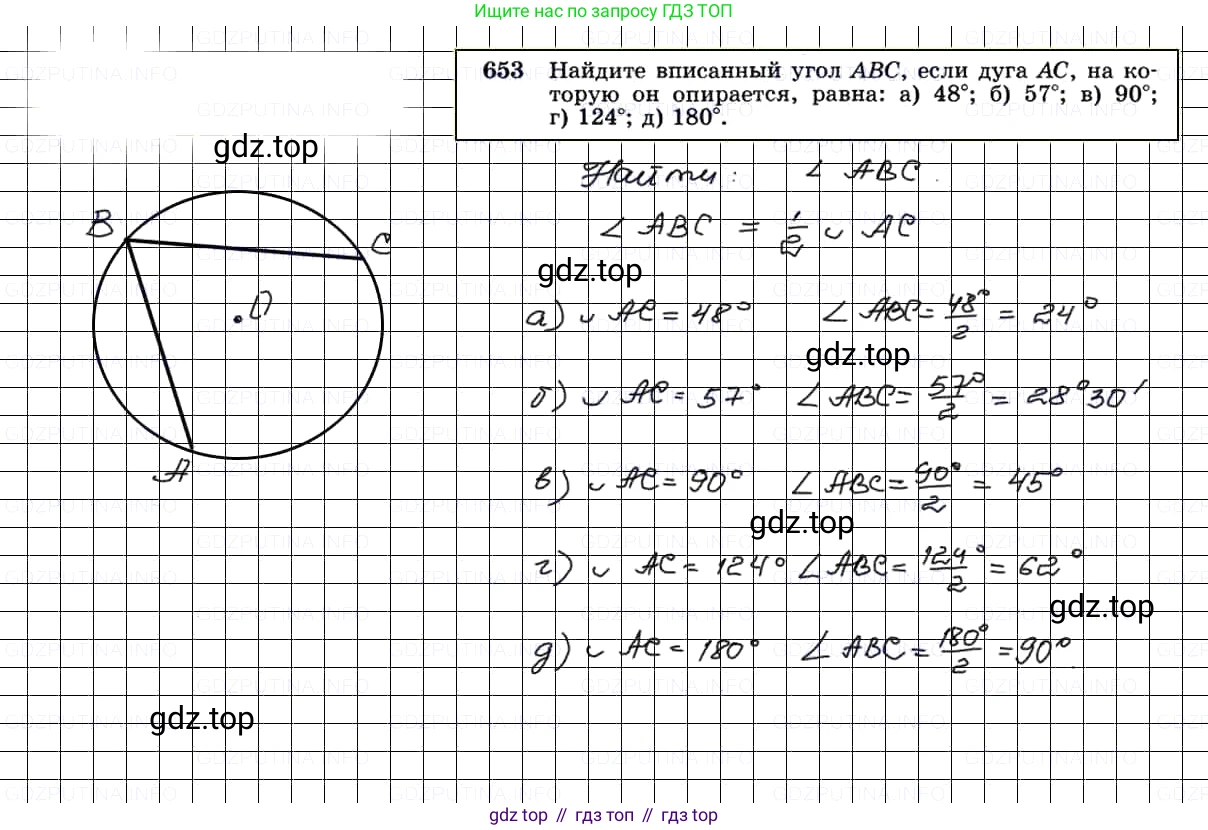 Ищите нас по запросу ГДЗ ТОП
653 Найдите вписанный угол ABC, если дуга AC, на ко-
торую он опирается, равна: а) 48°; б) 57°; в) 90°;
г) 124°; д) 180°.
gdz.top
Найти: ∠ ABC.
B
C
O
A
∠ ABC = 1/2 ◡ AC
gdz.top
а) ◡ AC = 48° ∠ ABC = 48°/2 = 24°
gdz.top
б) ◡ AC = 57° ∠ ABC = 57°/2 = 28°30'
в) ◡ AC = 90° ∠ ABC = 90°/2 = 45°
gdz.top
г) ◡ AC = 124° ∠ ABC = 124°/2 = 62°
gdz.top
д) ◡ AC = 180° ∠ ABC = 180°/2 = 90°.
gdz.top
GDZPUTINA.INFO
gdz top // гдз топ // гдз top